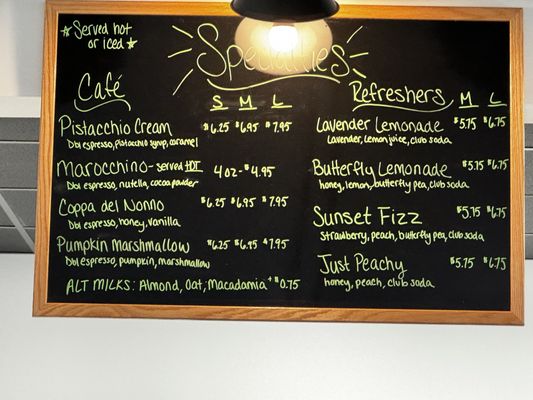 ★Served hot
or iced★
Specialties
Café
S M L
Pistacchio Cream $6.25 $6.95 $7.95
Dbl espresso, pistachio syrup, caramel
Marocchino - served HOT 4oz - $4.95
Dbl espresso, nutella, cocoa powder
Coppa del Nonno $6.25 $6.95 $7.95
Dbl espresso, honey, vanilla
Pumpkin Marshmallow $6.25 $6.95 $7.95
Dbl espresso, pumpkin, marshmallow
ALT MILKS: Almond, Oat, Macadamia +$0.75
Refreshers M L
Lavender Lemonade $5.75 $6.75
Lavender, lemon juice, club soda
Butterfly Lemonade $5.75 $6.75
honey, lemon, butterfly pea, club soda
Sunset Fizz $5.75 $6.75
Strawberry, peach, butterfly pea, club soda
Just Peachy $5.75 $6.75
honey, peach, club soda